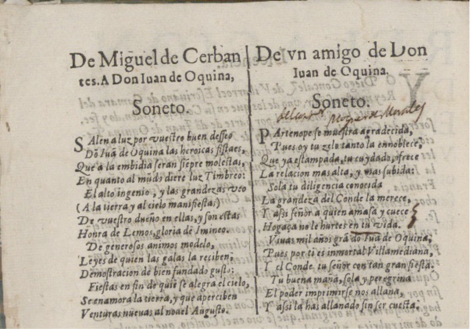 De Miguel de Cerban
tes. A Don Iuan de Oquina,
Soneto.
SAlen a luz por vuestro buen desseo
Dõ Iuã de Oquina las heroicas fiestas,
Que a la embidia seran siepre molestas,
En quanto al mũdo diere luz Timbreo:
El alto ingenio, y las grandezas veo
(A la tierra y al cielo manifiestas)
De vuestro dueño en ellas, y son estas
Honra de Lemos, gloria de Imineo.
De generosos animos modelo,
Leyes de quien las galas la reciben,
Demostracion de bien fundado gusto:
Fiestas en fin de quiẽ se alegra el cielo,
Se enamora la tierra, y que aperciben
Venturas nueuas al nouel Augusto.
De vn amigo de Don
Iuan de Oquina.
Soneto.
PArtenope se muestra agradecida,
Pues oy tu zelo tanto la ennoblece,
Que ya estampada, tu cuydado, ofrece
La relacion mas alta, y mas subida:
Sola tu diligencia conocida
La grandeza del Conde la merece,
Y assi señor a quien amasa y cuece
Hogaça no le hurtes en tu vida.
Viuas mil años grã dõ Iuã de Oquina,
Pues por ti es inmortal Villamediana,
Y el Conde tu señor con tan gran fiesta.
Tu buena maña, sola y peregrina
El poder imprimirse nos allana,
Y assi la has allanado sin ser cuesta.